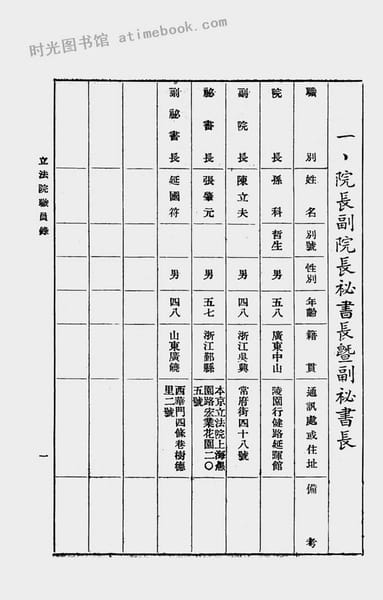 时光图书馆 atimebook.com
一、院長副院長祕書長暨副祕書長
職別 姓名 別號 性別 年齡 籍貫 通訊處或住址 備考
院長 孫科 哲生 男 五八 廣東中山 陵園行健路延暉館
副院長 陳立夫 男 四八 浙江吳興 常府街四十八號
祕書長 張肇元 男 五七 浙江鄞縣 本京立法院上海愚
園路宏業花園二〇
五號
副祕書長 延國符 男 四八 山東廣饒 西華門四條巷樹德
里二號
立法院職員錄 一